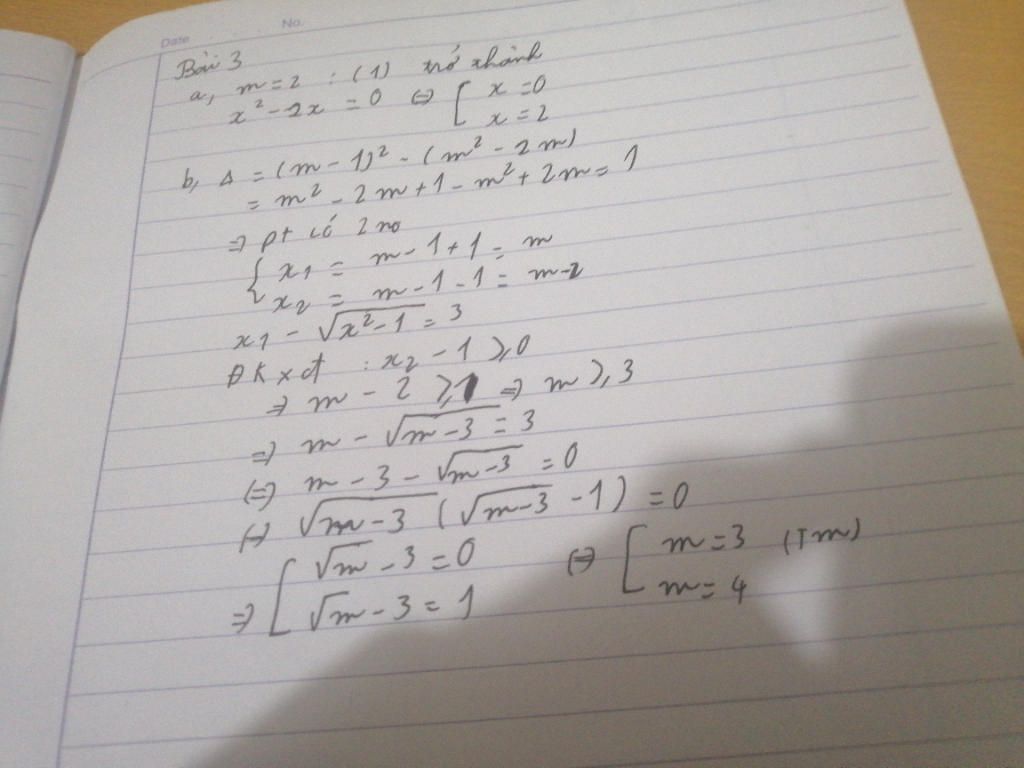 Date No.
Bài 3
a, m = 2 : (1) trở thành
x² - 2x = 0 ⇔ [ x = 0
x = 2
b, Δ = (m - 1)² - (m² - 2m)
= m² - 2m + 1 - m² + 2m = 1
⇒ pt có 2 no
{ x₁ = m - 1 + 1 = m
x₂ = m - 1 - 1 = m - 2
x₁ - √(x² - 1) = 3
ĐKxđ : x₂ - 1 ⩾ 0
⇒ m - 2 ⩾ 1 ⇒ m ⩾ 3
⇒ m - √(m - 3) = 3
⇔ m - 3 - √(m - 3) = 0
⇔ √(m - 3) (√(m - 3) - 1) = 0
⇒ [ √m - 3 = 0 ⇔ [ m = 3 (Tm)
√m - 3 = 1 m = 4